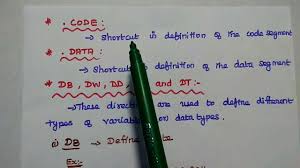 * .CODE :-
→ Shortcut in definition of the code segment
* .DATA :
→ Shortcut definition of the data segment
* DB, DW, DD, and DT :-
→ These direc are used to define different
types of variable or data types.
i) DB → Define
Ex:-